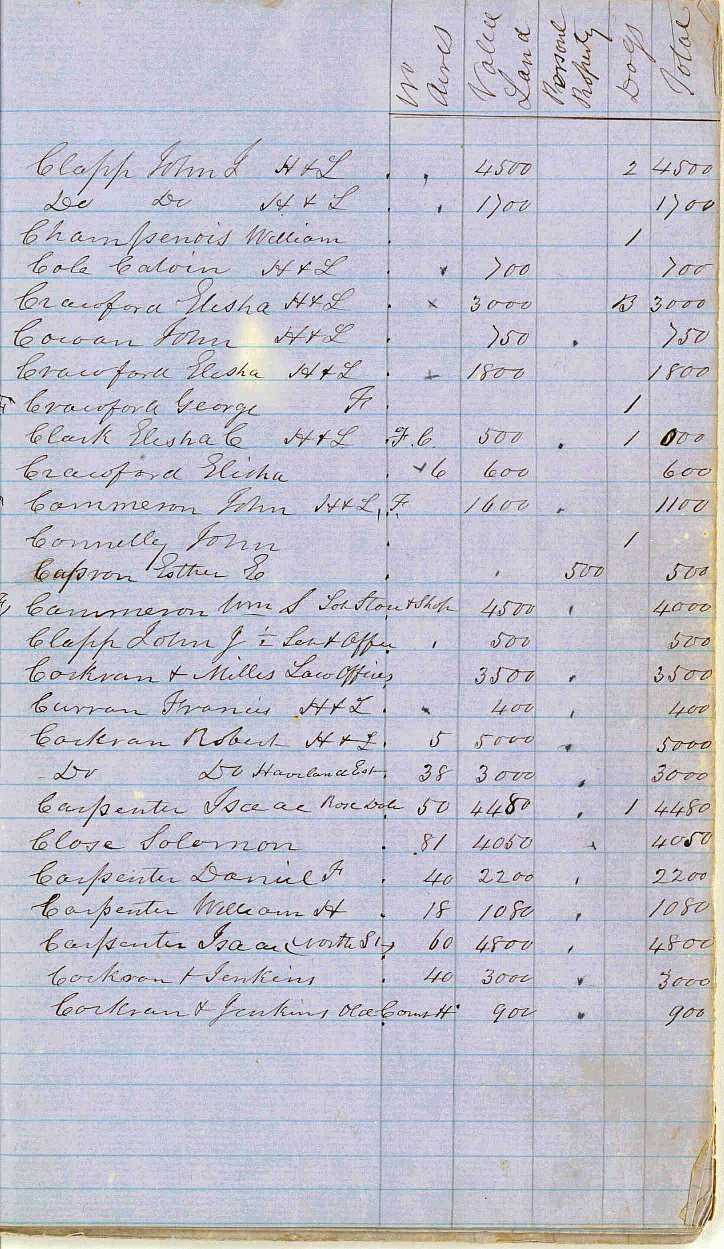 No Acres Value Land Personl Property Dogs Total
Clapp John J H & L 4500 2 4500
Do Do H & L 1700 1700
Champenois William 1
Cole Calvin H & L 700 700
Crawford Elisha H & L 3000 3000
Cowan John H & L 750 750
Crawford Elisha H & L 1800 1800
Crawford George F 1
Clark Elisha C H & L F. C. 500 1 000
Crawford Elisha 6 600 600
Cammeron John H & L, F. 1600 1100
Connelly John 1
Capron Esther E 500 500
Cammeron Wm S Store & Shop 4500 4000
Clapp John J ½ & Office 500 500
Corkran & Mills Law Offices 3500 3500
Curran Francis H & L 400 400
Corkran Robert H & L 5 5000 5000
Do Do Haveland Est. 38 3000 3000
Carpenter Isaac Rose Dale 50 4480 1 4480
Close Solomon 81 4050 4050
Carpenter Daniel F 40 2200 2200
Carpenter William H 18 1080 1080
Carpenter Isaac (North St) 60 4800 4800
Corkran & Jenkins 40 3000 3000
Corkran & Jenkins Old Court H 900 900